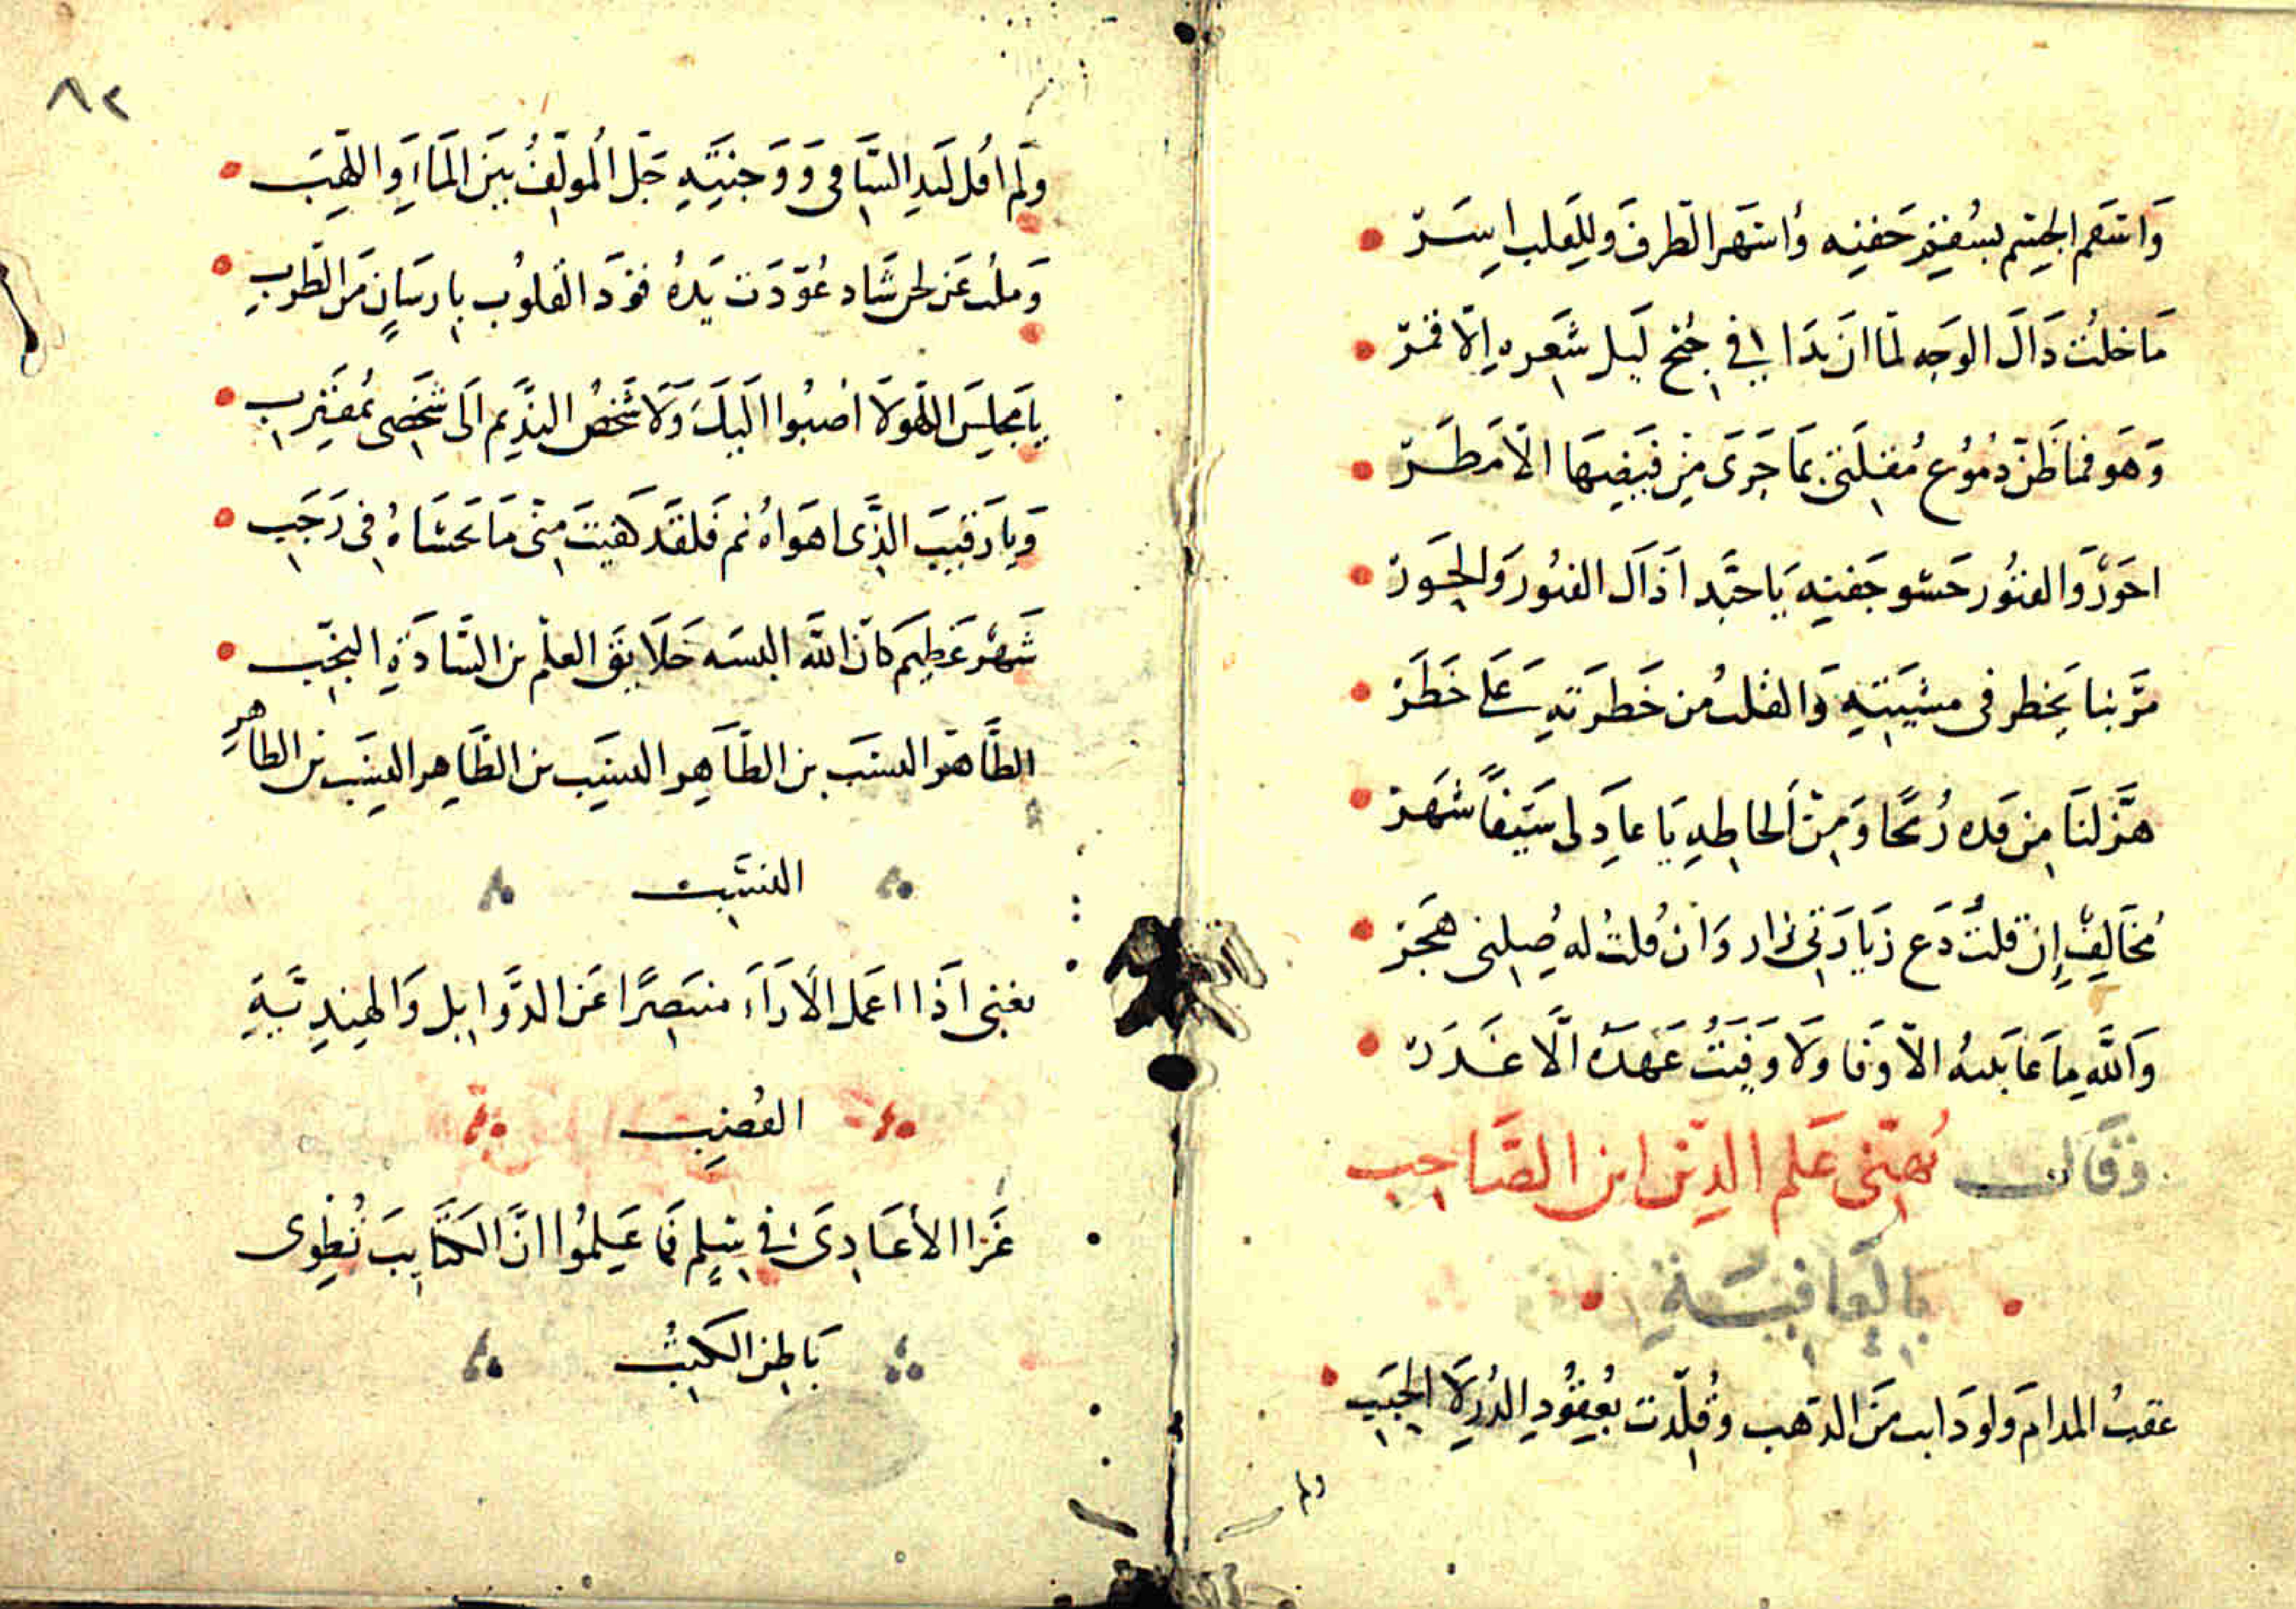 وَاسقم الجِسم بسُقم جَفنِه وأسهَر الطرفَ وللقلب اسَرْ
مَا خلتُ ذَاكَ الوَجه لمّا ان بَدَا في جُنح لَيل شَعره إلّا قمرْ
وَهو فما ظنّ دمُوُع مُقلَتى بمَا جَرَى مِن فَيضِهَا الّا مَطَرْ
احوَرْ وَالفتُور حَشو جَفنِه يَا حبَّذا ذَاكَ الفتُور وَالحَوَرْ
مَرّ بنا يَخطر فى مشيَتِه وَالقلبُ من خَطرَتهِ عَلَى خَطَرْ
هَزّ لنَا مِن قده رُمحًا وَمِن ألحاظِهِ يَا عاذلى سَيفاً شهَرْ
مُخَالِفٌ إن قلتُ دَع زيَارَتى زار وَان قُلتُ له صِلنى هَجَرْ
وَاللَّهِ مَا عَابلته الّا وَفا ولَا وَفَيتُ عَهدَه الّا غَدَرْ
وَقالَ يُهنّى عَلم الدّين ابن الصَّاحِب
بالعَافيَةِ
عقبُ المدام وَلو ذابت مَن الذهب وقُلّدت بُعقُودِ الدُرِ لَا الحَبَبِ
ولم
٨٢
ولَم اقل لَيدِ السَّاقى وَوَجنَتِهِ جَلّ المُولّفُ بَينَ المَاءِ وَاللّهَبِ
وَملتُ عَن لحن شَاد عُوّدَت يَدهُ قوَد القلُوب بِارسَانٍ مَن الطّربِ
يا مَجلِسَ اللّهو لَا اصبُوا الَيكَ وَلَا شَخصُ النّدِيم الَى شَخصى بمُقتَرِب
وَيا رَقيبَ الذّى اهوَاهُ نم فَلقَد كفيتَ مِنّى مَا تَخشَاهُ فى رَجَبِ
شَهرٌ عَظِيم كانَّ اللَّه البسَه خَلَايقَ العلم بن السَّادَةِ النجبِ
الطّاهر النسَب بن الطّاهِر النسَب بن الطّاهِر النسَب بن الطاهرِ
النسَبِ
يغنى اذَا اعمَل الآرَاءَ منتَصِرًا عَن الذَّوَابِل وَالهِندِيّةِ
القُضِبِ
غَزا الأعَادِىَ فى سِلمٍ فَمَا عَلِمُوا انَّ الكتَّايبَ تُطوى
بَاطِن الكتبُ